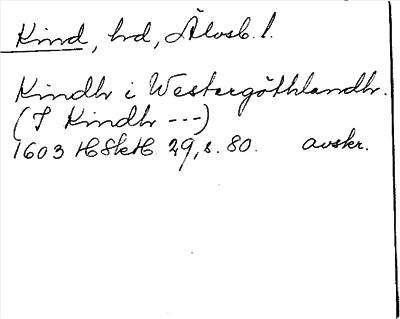 Kind, hd, Älvsb. l.
Kindh i Westergöthlandh.
(I Kindh ---)
1603 HSkH 29, s. 80. avskr.